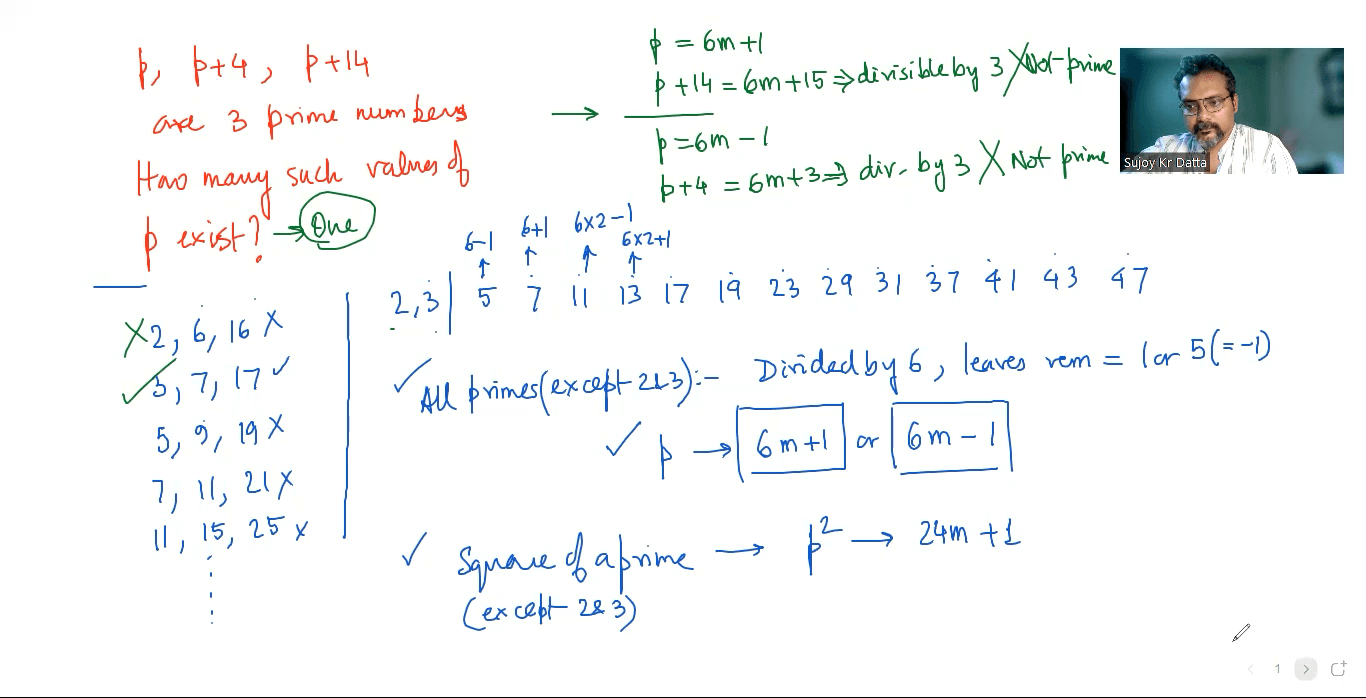 p, p+4, p+14
are 3 prime numbers
How many such values of
p exist? → One
→
p = 6m+1
p+14 = 6m+15 ⇒ divisible by 3 X Not-prime
p = 6m-1
p+4 = 6m+3 ⇒ div. by 3 X Not prime
Sujoy Kr Datta
X 2, 6, 16 X
✓ 3, 7, 17 ✓
5, 9, 19 X
7, 11, 21 X
11, 15, 25 x
6-1 6+1 6x2-1 6x2+1
2, 3 | 5 7 11 13 17 19 23 29 31 37 41 43 47
✓ All primes (except 2&3):- Divided by 6, leaves rem = 1 or 5(=-1)
✓ p → 6m+1 or 6m-1
✓ Square of a prime → p² → 24m+1
(except 2&3)
1